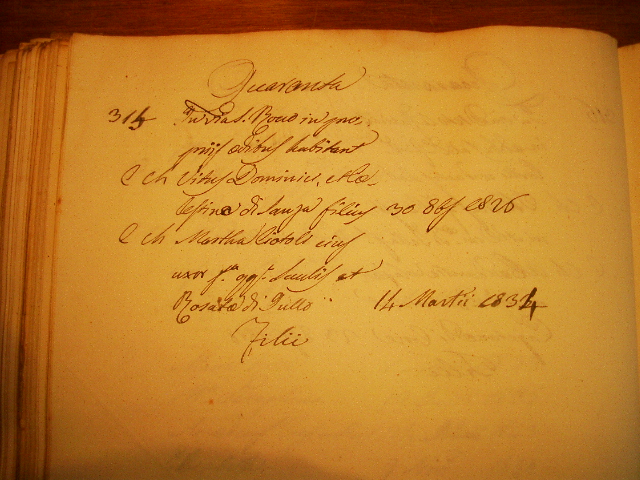 Quaranta
315 In Via S. Roco in pro-
priis ædibus habitant
C ch Vitus Dominici, et Cæ-
lestinæ di Sanza filius 30 8bs 1826
C ch Martha Ciotola eius
uxor f.a qq.m Paulis et
Rosatæ di Tullo 14 Martii 1834
Filii